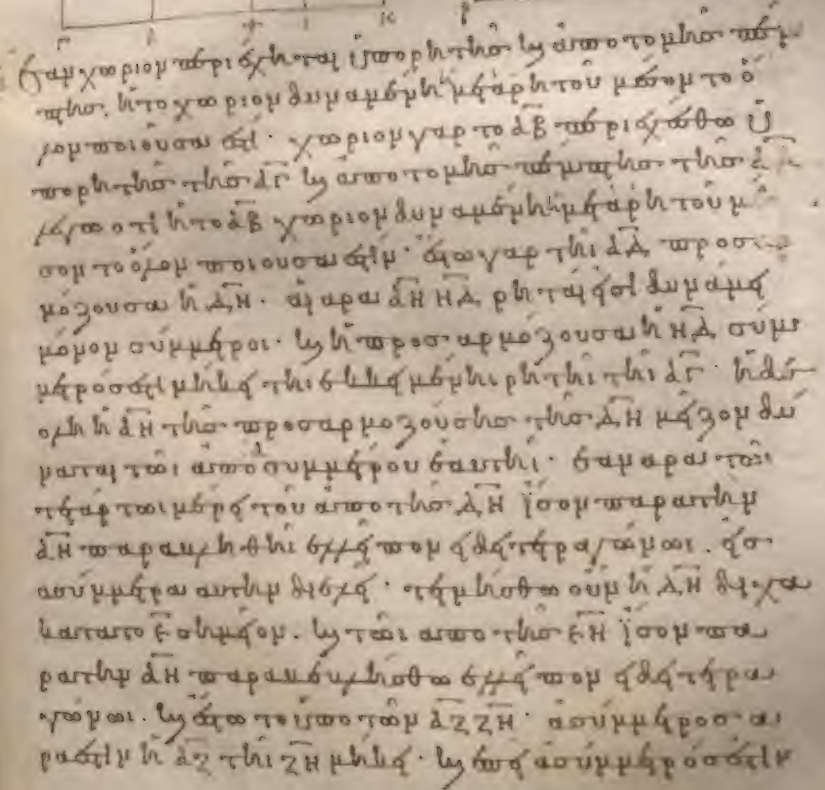 Ἐὰν χωρίον περιέχηται ὑπο ῥητῆς καὶ ἀποτομῆς πέμ
πτης· ἡ το χωρίον δυναμένη ἡ μετὰ ρητοῦ μέσον το ὅ
λον ποιοῦσα ἐστί· χωρίον γαρ το ΑΒ περιεχέσθω ὑ
πο ρητῆς τῆς ΑΓ καὶ ἀποτομῆς πέμπτης τῆς
λέγω οτι ἡ το ΑΒ χωρίον δυναμένη ἡ μετὰ ρητοῦ μέ
σον το ὅλον ποιοῦσα ἐστίν· ἔστω γαρ τῆι ΑΔ προσαρ
μόζουσα ἡ ΔΗ· αἱ αρα ΑΗ ΗΔ ρηταί εἰσι δυνάμει
μόνον σύμμετροι· καὶ ἡ προσαρμόζουσα ἡ ΗΔ σύμμε
τρός ἐστι μήκει τῆι ἐκκειμένηι ρητῆι τῆι ΑΓ· ἡ δὲ
ολη ἡ ΑΗ τῆς προσαρμοζούσης τῆς ΔΗ μεῖζον δύ
ναται τῶι ἀπὸ ἀσυμμέτρου ἑαυτῆι· ἐὰν αρα τῶι
τετάρτωι μέρει τοῦ ἀπο τῆς ΔΗ ἴσον παρα τὴν
ΑΗ παραβληθῆι ἐλλεῖπον εἴδει τετραγώνωι· εἰς
ἀσύμμετρα αυτὴν διελεῖ· τετμήσθω οὖν ἡ ΔΗ δίχα
κατα το Ε σημεῖον· καὶ τῶι απο τῆς ΕΗ ἴσον πα
ρα τὴν ΑΗ παραβεβλήσθω ἐλλεῖπον εἴδει τετρα
γώνωι· καὶ ἔστω το ὑπο τῶν ΑΖ ΖΗ· ἀσύμμετρος α
ρα ἐστὶν ἡ ΑΖ τῆι ΖΗ μήκει· καὶ ἐπεὶ ἀσύμμετρός ἐστιν